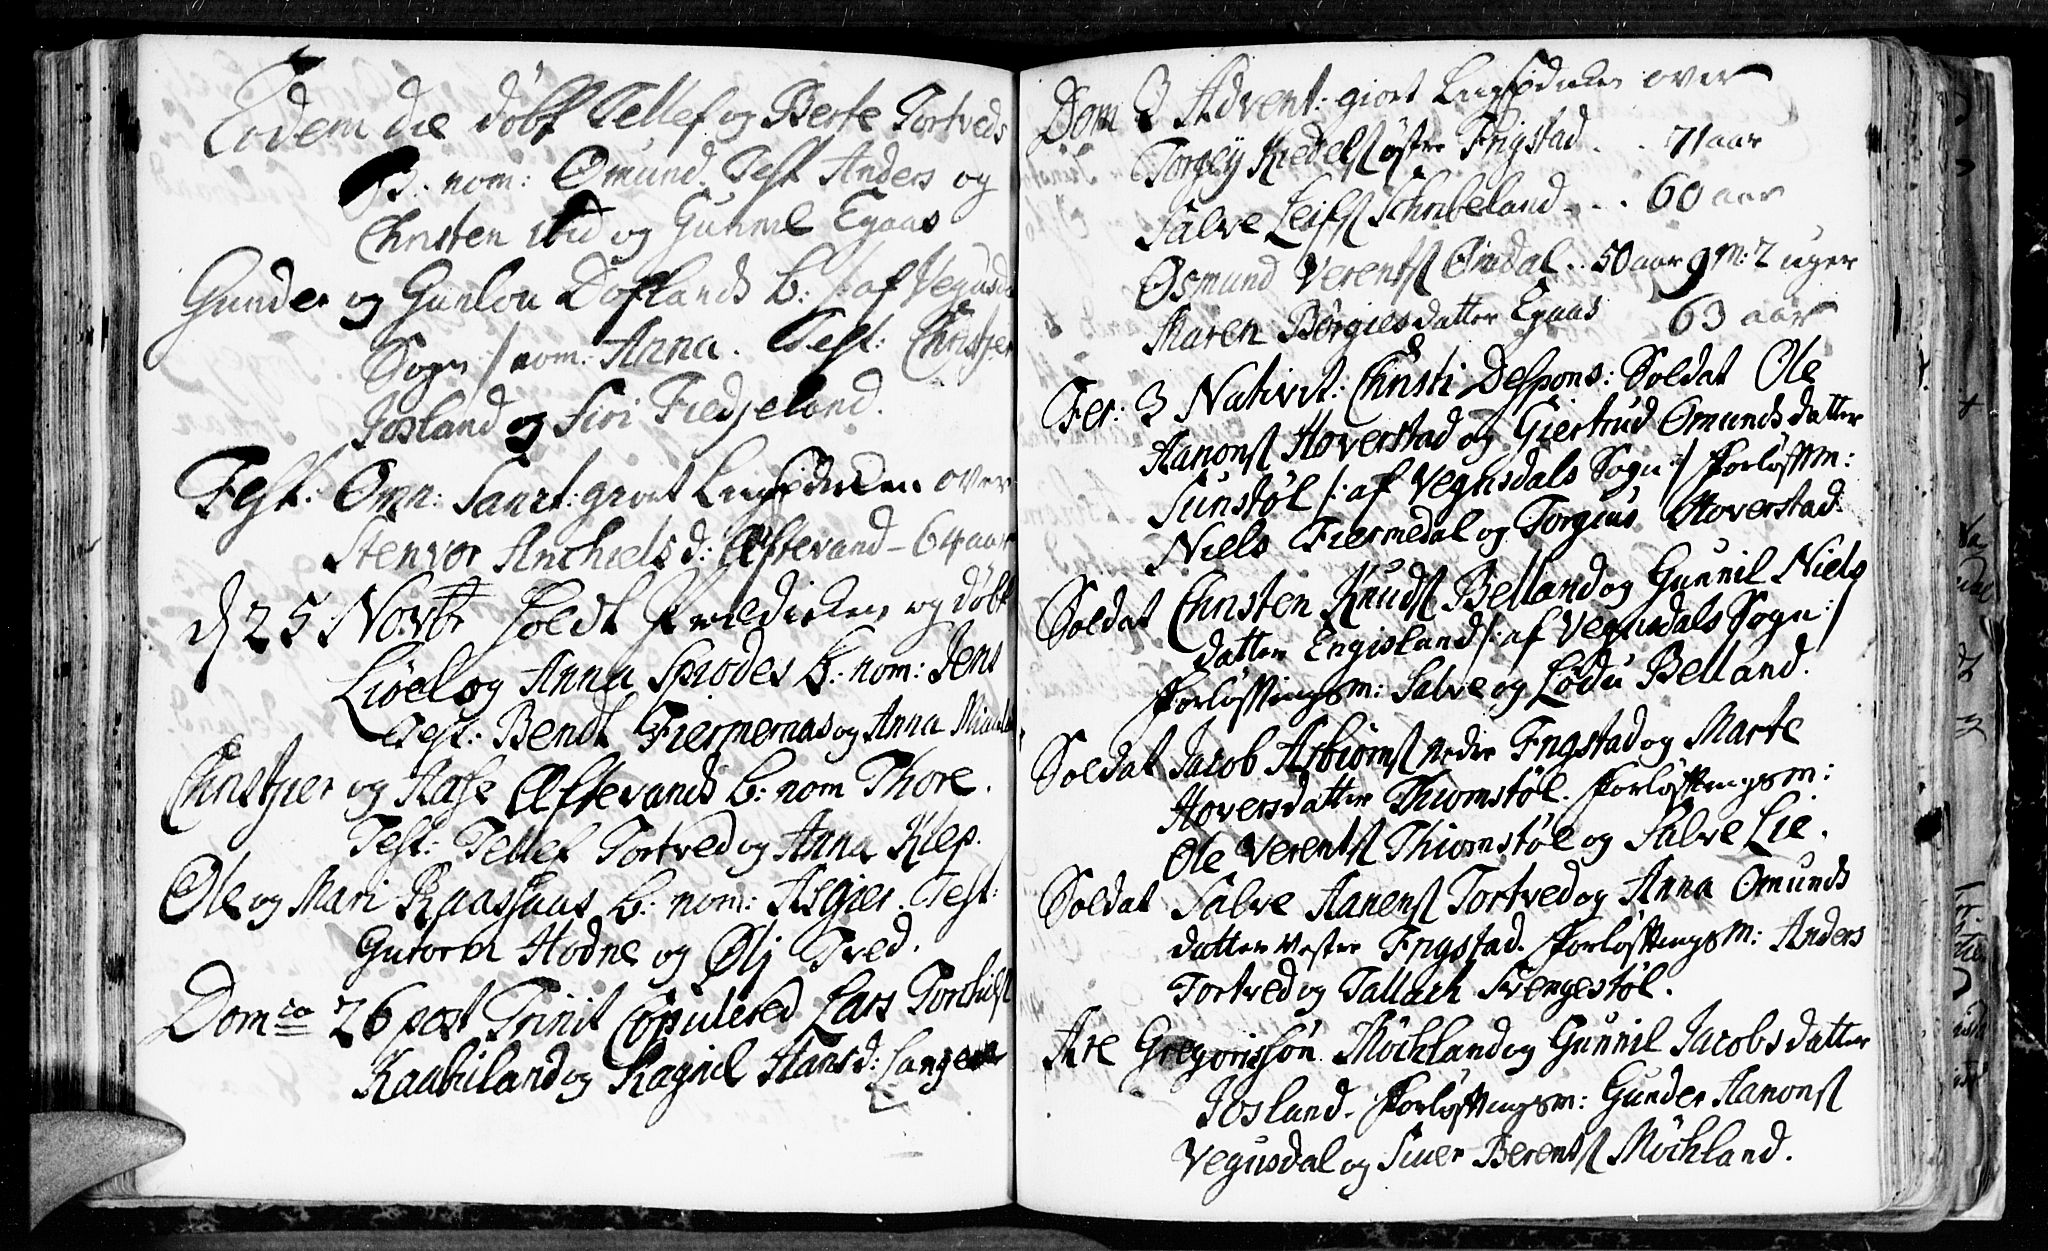 Eodem die døbt Tellef og Berte Tortveds
B: nom: Omund. Test Anders og
Christen ibid og Gunnil Egaas
Gunder og Gunlou Doflands b: /: af Vegusda
Sogn :/ nom: Anna. Test: Christjer
Josland og Siri Fiedjeland.
Fest: Omn: Sanct: giort Liigprædicken over
Stenvor Anchiels d: Eftevand - 64 aar
d 25 Novbr holdt Prædicken og døbt
Liøel og Anna Spiodes b: nom: Jens
Test: Bendt Fiermeraas og Anna
Christjer og Aase Eftevands b: nom Thore.
Test: Tellef Tortved og Anna Klep.
Ole og Mari Raassaas b: nom: Asgier. Test:
Gutorm Hodne og Øli Tved.
Dom ca 26 post Trinit Copulered Lars Torchilsſ
Raabiland og Ragnil Hans d:
Dom 3 Advent: giort Liigprædicken over
Torgey Kiedelsſ østre Frigstad . . 71 aar
Salve Leifsſ Schribeland . . . 60 aar
Osmund Verentsſ Omdal . . 50 aar 9 m: 2 uger
Maren Børgiesdatter Egaas 63 aar
Fer: 3 Nativit: Christi Despons: Soldat Ole
Aanonsſ Hoverstad og Giertrud Omunds datter
Sunstøl /: af Vegusdals Sogn :/ Forløftm:
Niels Fiermedal og Torgius Hoverstad.
Soldat Christen Knudsſ Belland og Gunnil Niels
datter Engisland /: af Vegusdals Sogn :/
Forløftningsm: Salve og Lødu Belland.
Soldat Jacob Asbiørnsſ nedre Frigstad og Marte
Hoversdatter Thiomstøl. Forløftningsm:
Ole Verentsſ Thiomstøl og Salve Lie.
Soldat Salve Aanensſ Tortved og Anna Omunds
datter vestre Frigstad. Forløftningsm: Anders
Tortved og Tallach Svengestøl.
Are Gregorissøn Møchland og Gunnil Jacobsdatter
Josland. Forløftningsm: Gunder Aanonsſ
Vegusdal og Siuer Berentsſ Møchland.